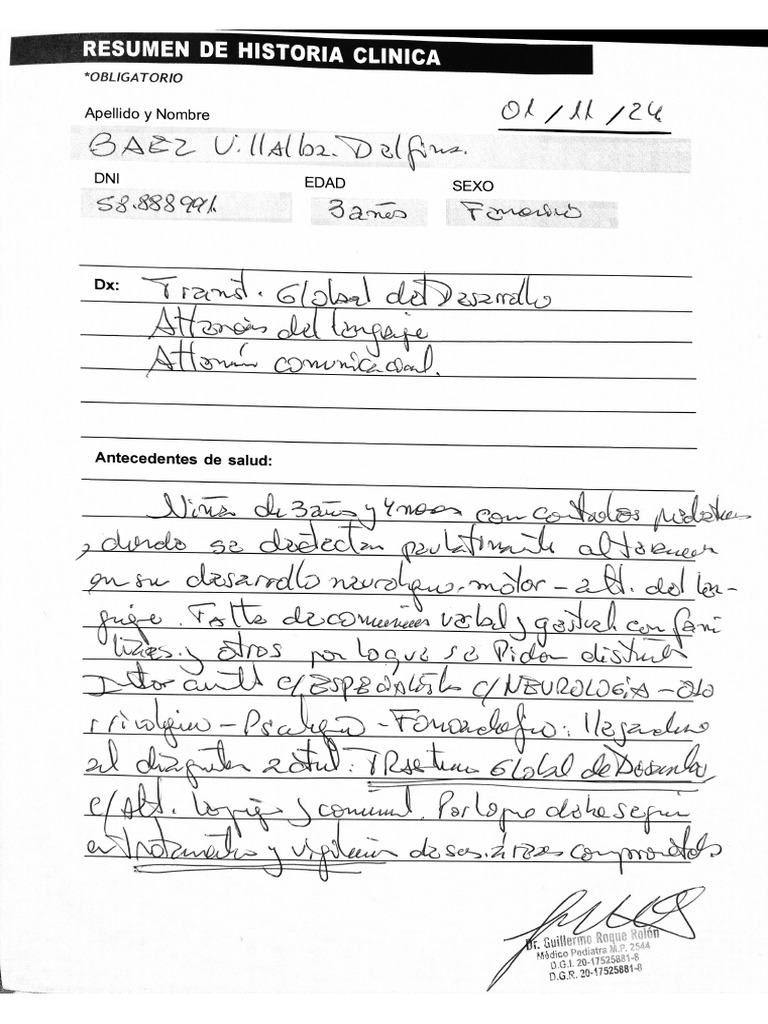 RESUMEN DE HISTORIA CLINICA
*OBLIGATORIO
Apellido y Nombre
01/11/24
BAEZ Villalba. Delfina.
DNI EDAD SEXO
58.888991. 3 años Femenino
Dx: Trast. Global del Desarrollo
Alteración del lenguaje
Alteración comunicacional.
Antecedentes de salud:
Niña de 3 años y 4 meses con controles
, donde se detectan paulatinamente
en su desarrollo motor - alt. del len-
guaje. Falta de comunicación verbal y gestual con fami
liares y otros por lo que se Piden
c/ESPECIALISTA c/NEUROLOGIA - Oto
- Psicología - Fonoaudiología: llegando
al actual: Global de Desarrollo
c/Alt. y comunic. Por lo que debe seguir
en Tratamiento y vigilancia de sus áreas comprometidas
Dr. Guillermo Roque Rolón
Médico Pediatra M.P. 2544
D.G.I. 20-17525881-8
D.G.R. 20-17525881-8